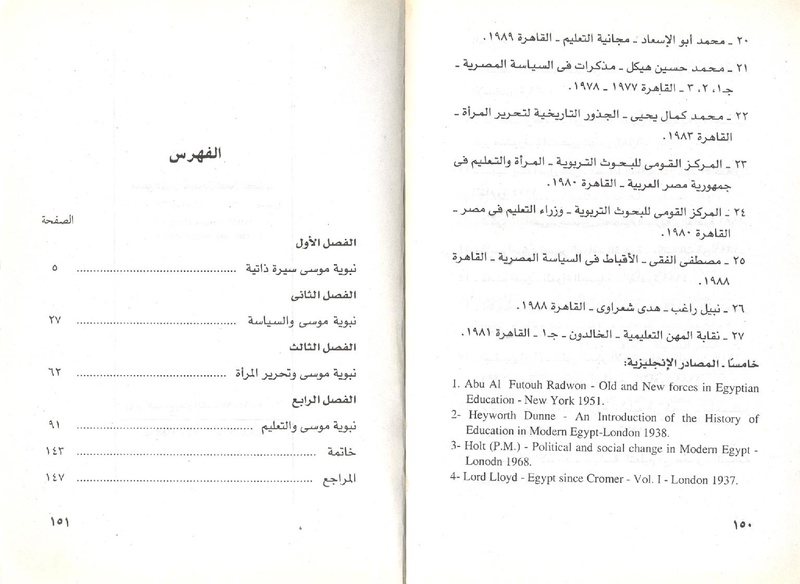 ٢٠ ـ محمد أبو الإسعاد ـ مجانية التعليم ـ القاهرة ١٩٨٩.
٢١ ـ محمد حسين هيكل ـ مذكرات فى السياسة المصرية ـ
جـ١، ٢، ٣ ـ القاهرة ١٩٧٧ ـ ١٩٧٨.
٢٢ ـ محمد كمال يحيى ـ الجذور التاريخية لتحرير المرأة ـ
القاهرة ١٩٨٣.
٢٣ ـ المركز القومى للبحوث التربوية ـ المرأة والتعليم فى
جمهورية مصر العربية ـ القاهرة ١٩٨٠.
٢٤ ـ المركز القومى للبحوث التربوية ـ وزراء التعليم فى مصر ـ
القاهرة ١٩٨٠.
٢٥ ـ مصطفى الفقى ـ الأقباط فى السياسة المصرية ـ القاهرة
١٩٨٨.
٢٦ ـ نبيل راغب ـ هدى شعراوى ـ القاهرة ١٩٨٨.
٢٧ ـ نقابة المهن التعليمية ـ الخالدون ـ جـ١ ـ القاهرة ١٩٨١.
خامسًا ـ المصادر الإنجليزية:
1. Abu Al Futouh Radwon - Old and New forces in Egyptian
Education - New York 1951.
2- Heyworth Dunne - An Introduction of the History of
Education in Modern Egypt-London 1938.
3- Holt (P.M.) - Political and social change in Modern Egypt -
Lonodn 1968.
4- Lord Lloyd - Egypt since Cromer - Vol. I - London 1937.
١٥٠
الفهرس
الصفحة
الفصل الأول
نبوية موسى سيرة ذاتية ........................................ ٥
الفصل الثانى
نبوية موسى والسياسة ........................................ ٢٧
الفصل الثالث
نبوية موسى وتحرير المرأة ........................................ ٦٢
الفصل الرابع
نبوية موسى والتعليم ........................................ ٩١
خاتمة ........................................ ١٤٣
المراجع ........................................ ١٤٧
١٥١